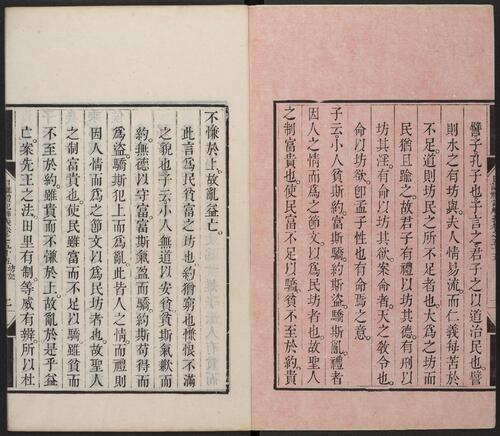 譬子孔子也子言之君子以道治民也譬
則水之有坊與夫人情易流而仁義每苦於
不足道則坊民之所不足者也大爲之坊而
民猶且踰之故君子有禮以坊其德有刑以
坊其淫有命以坊其欲案命者天之教令也
命以坊欲卽孟子性也有命焉之意
子云小人貧斯約富斯驕約斯盜驕斯亂禮者
因人之情而爲之節文以爲民坊者也故聖人
之制富貴也使民富不足以驕貧不至於約貴
不慊於上故亂益亡
此言爲民貧富之坊也約猶窮也慊恨不滿
之貌也子云小人無道以安貧貧斯氣歉而
約無德以守富富斯氣盈而驕約斯苟得而
爲盜驕斯犯上而爲亂此皆人之情而禮則
因人情而爲之節文以爲民坊者也故聖人
之制富貴也使民雖富而不足以驕雖貧而
不至於約雖貴而不慊於上故亂於是乎益
亡案先王之法田里有制等威有辨所以杜